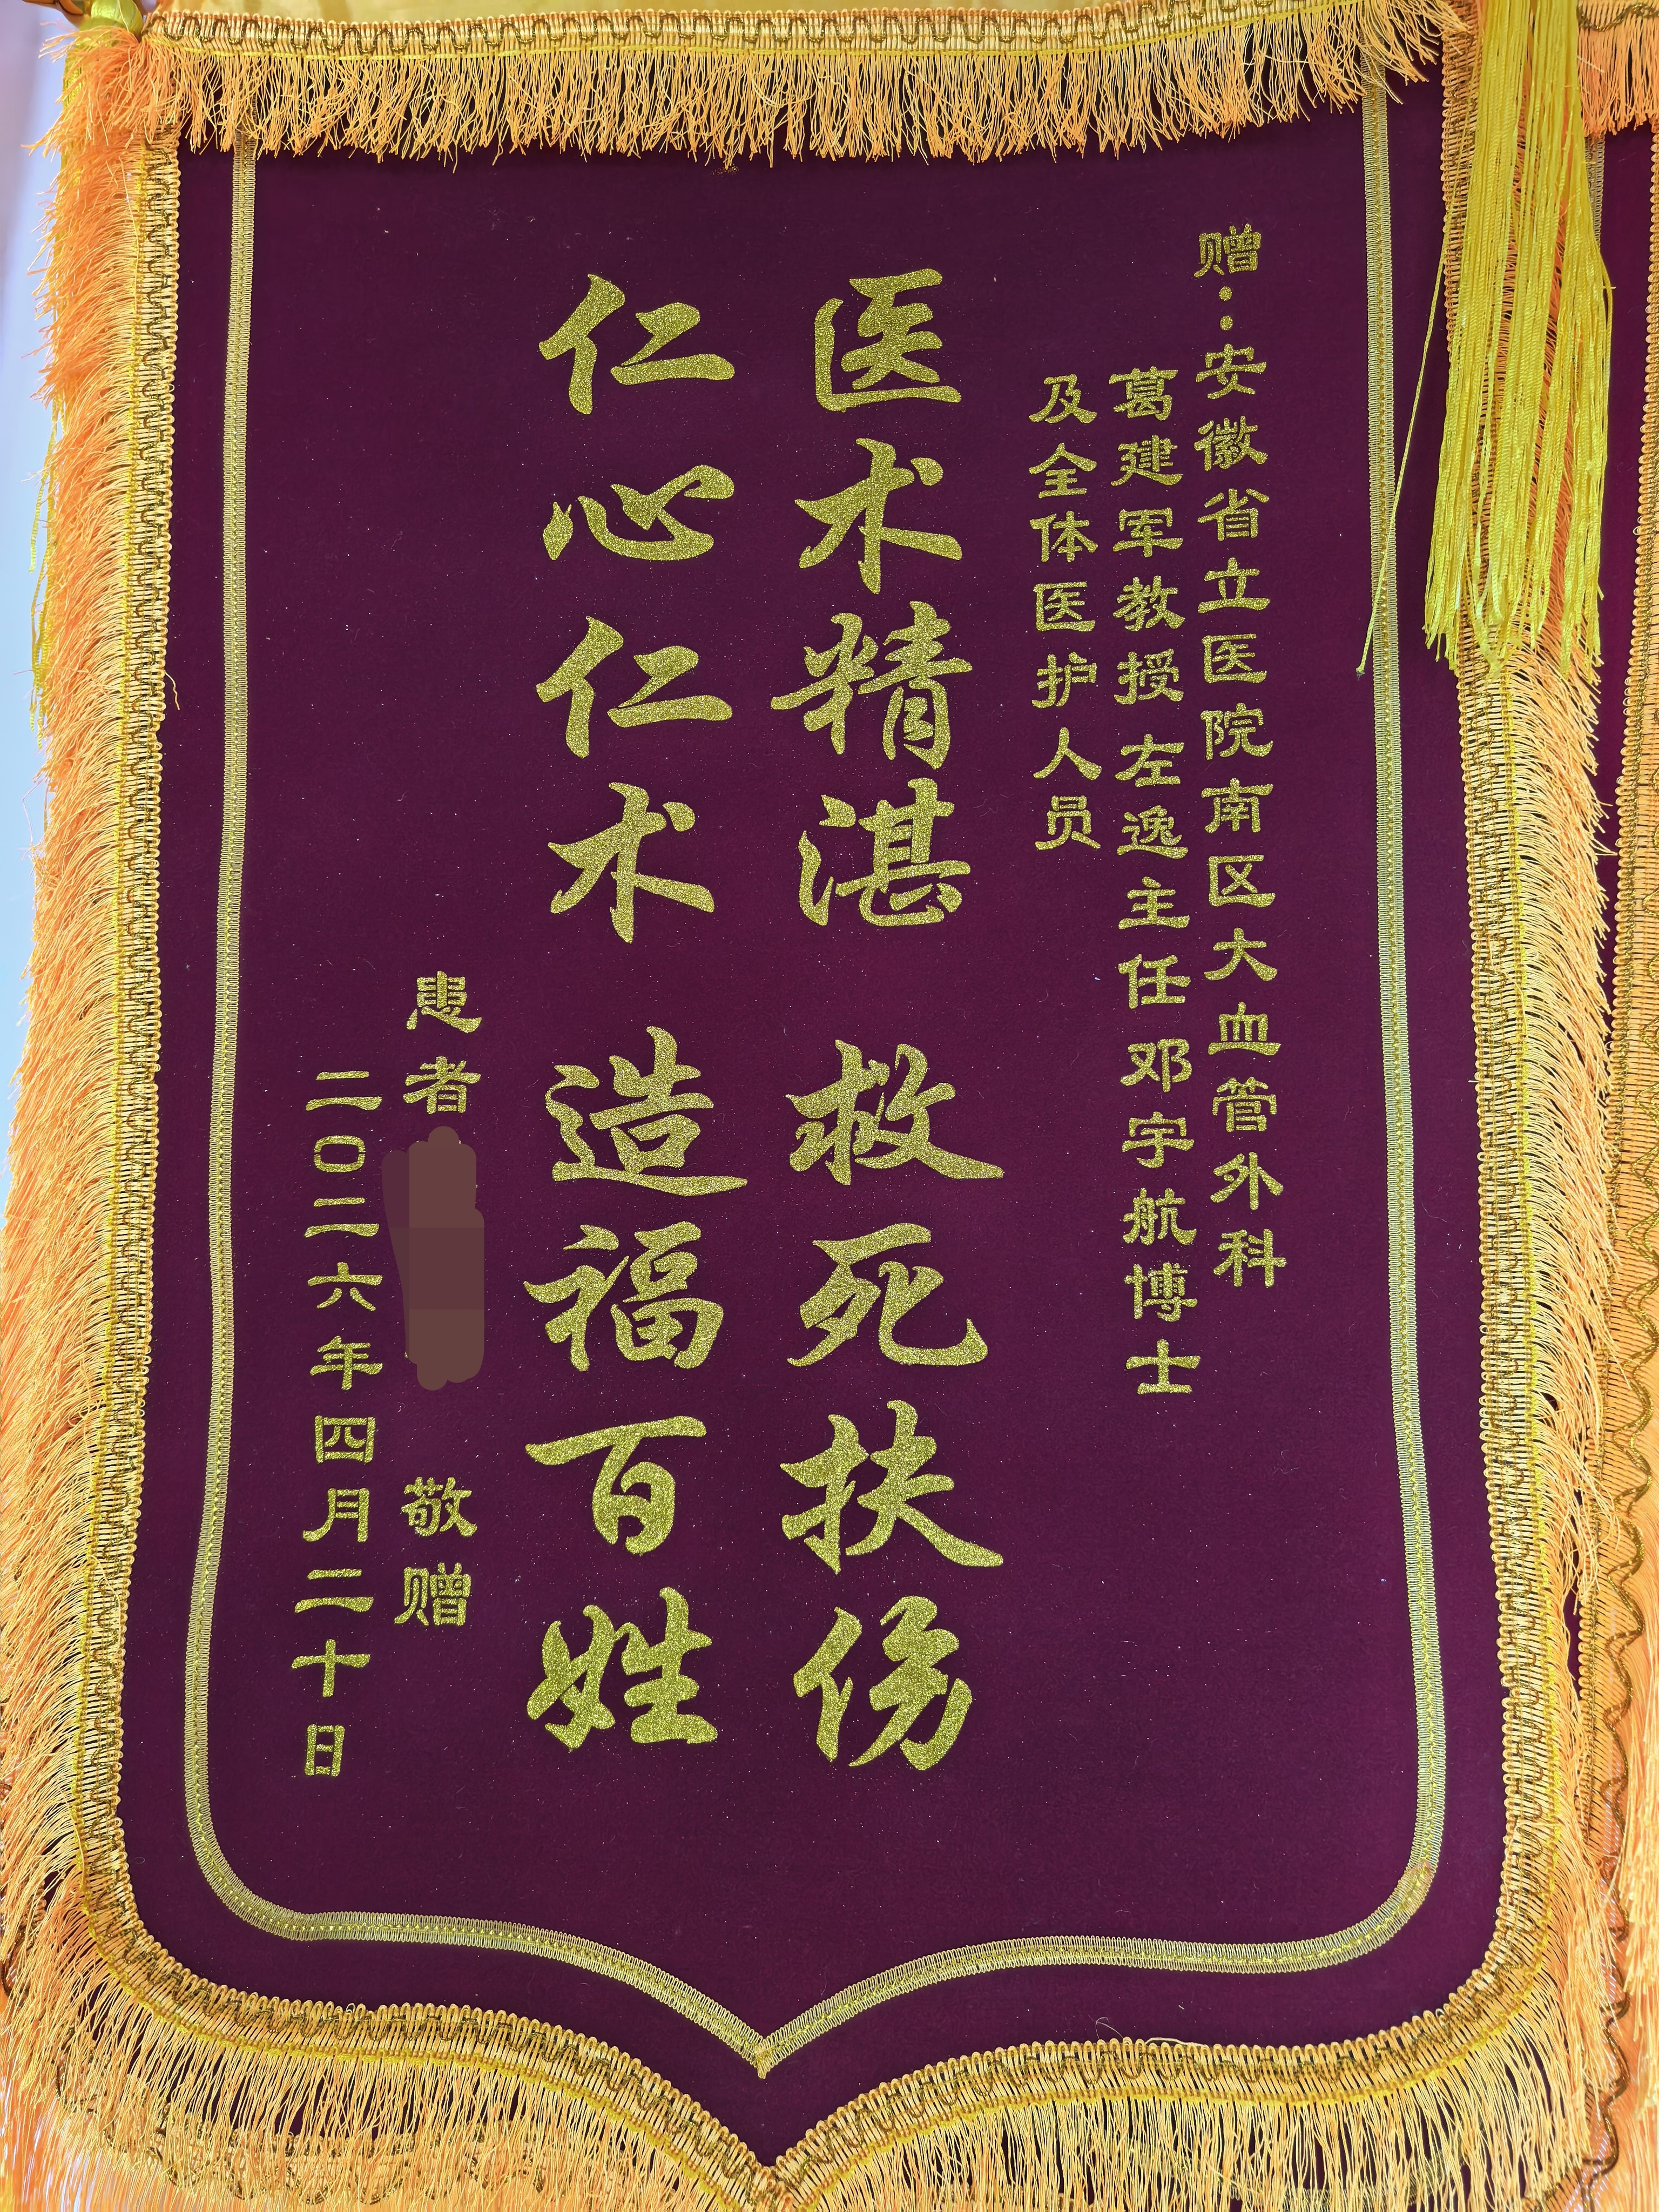 赠：安徽省立医院南区大血管外科
葛建军教授左逸主任邓宇航博士
及全体医护人员
医术精湛 救死扶伤
仁心仁术 造福百姓
患者 敬赠
二〇二六年四月二十日